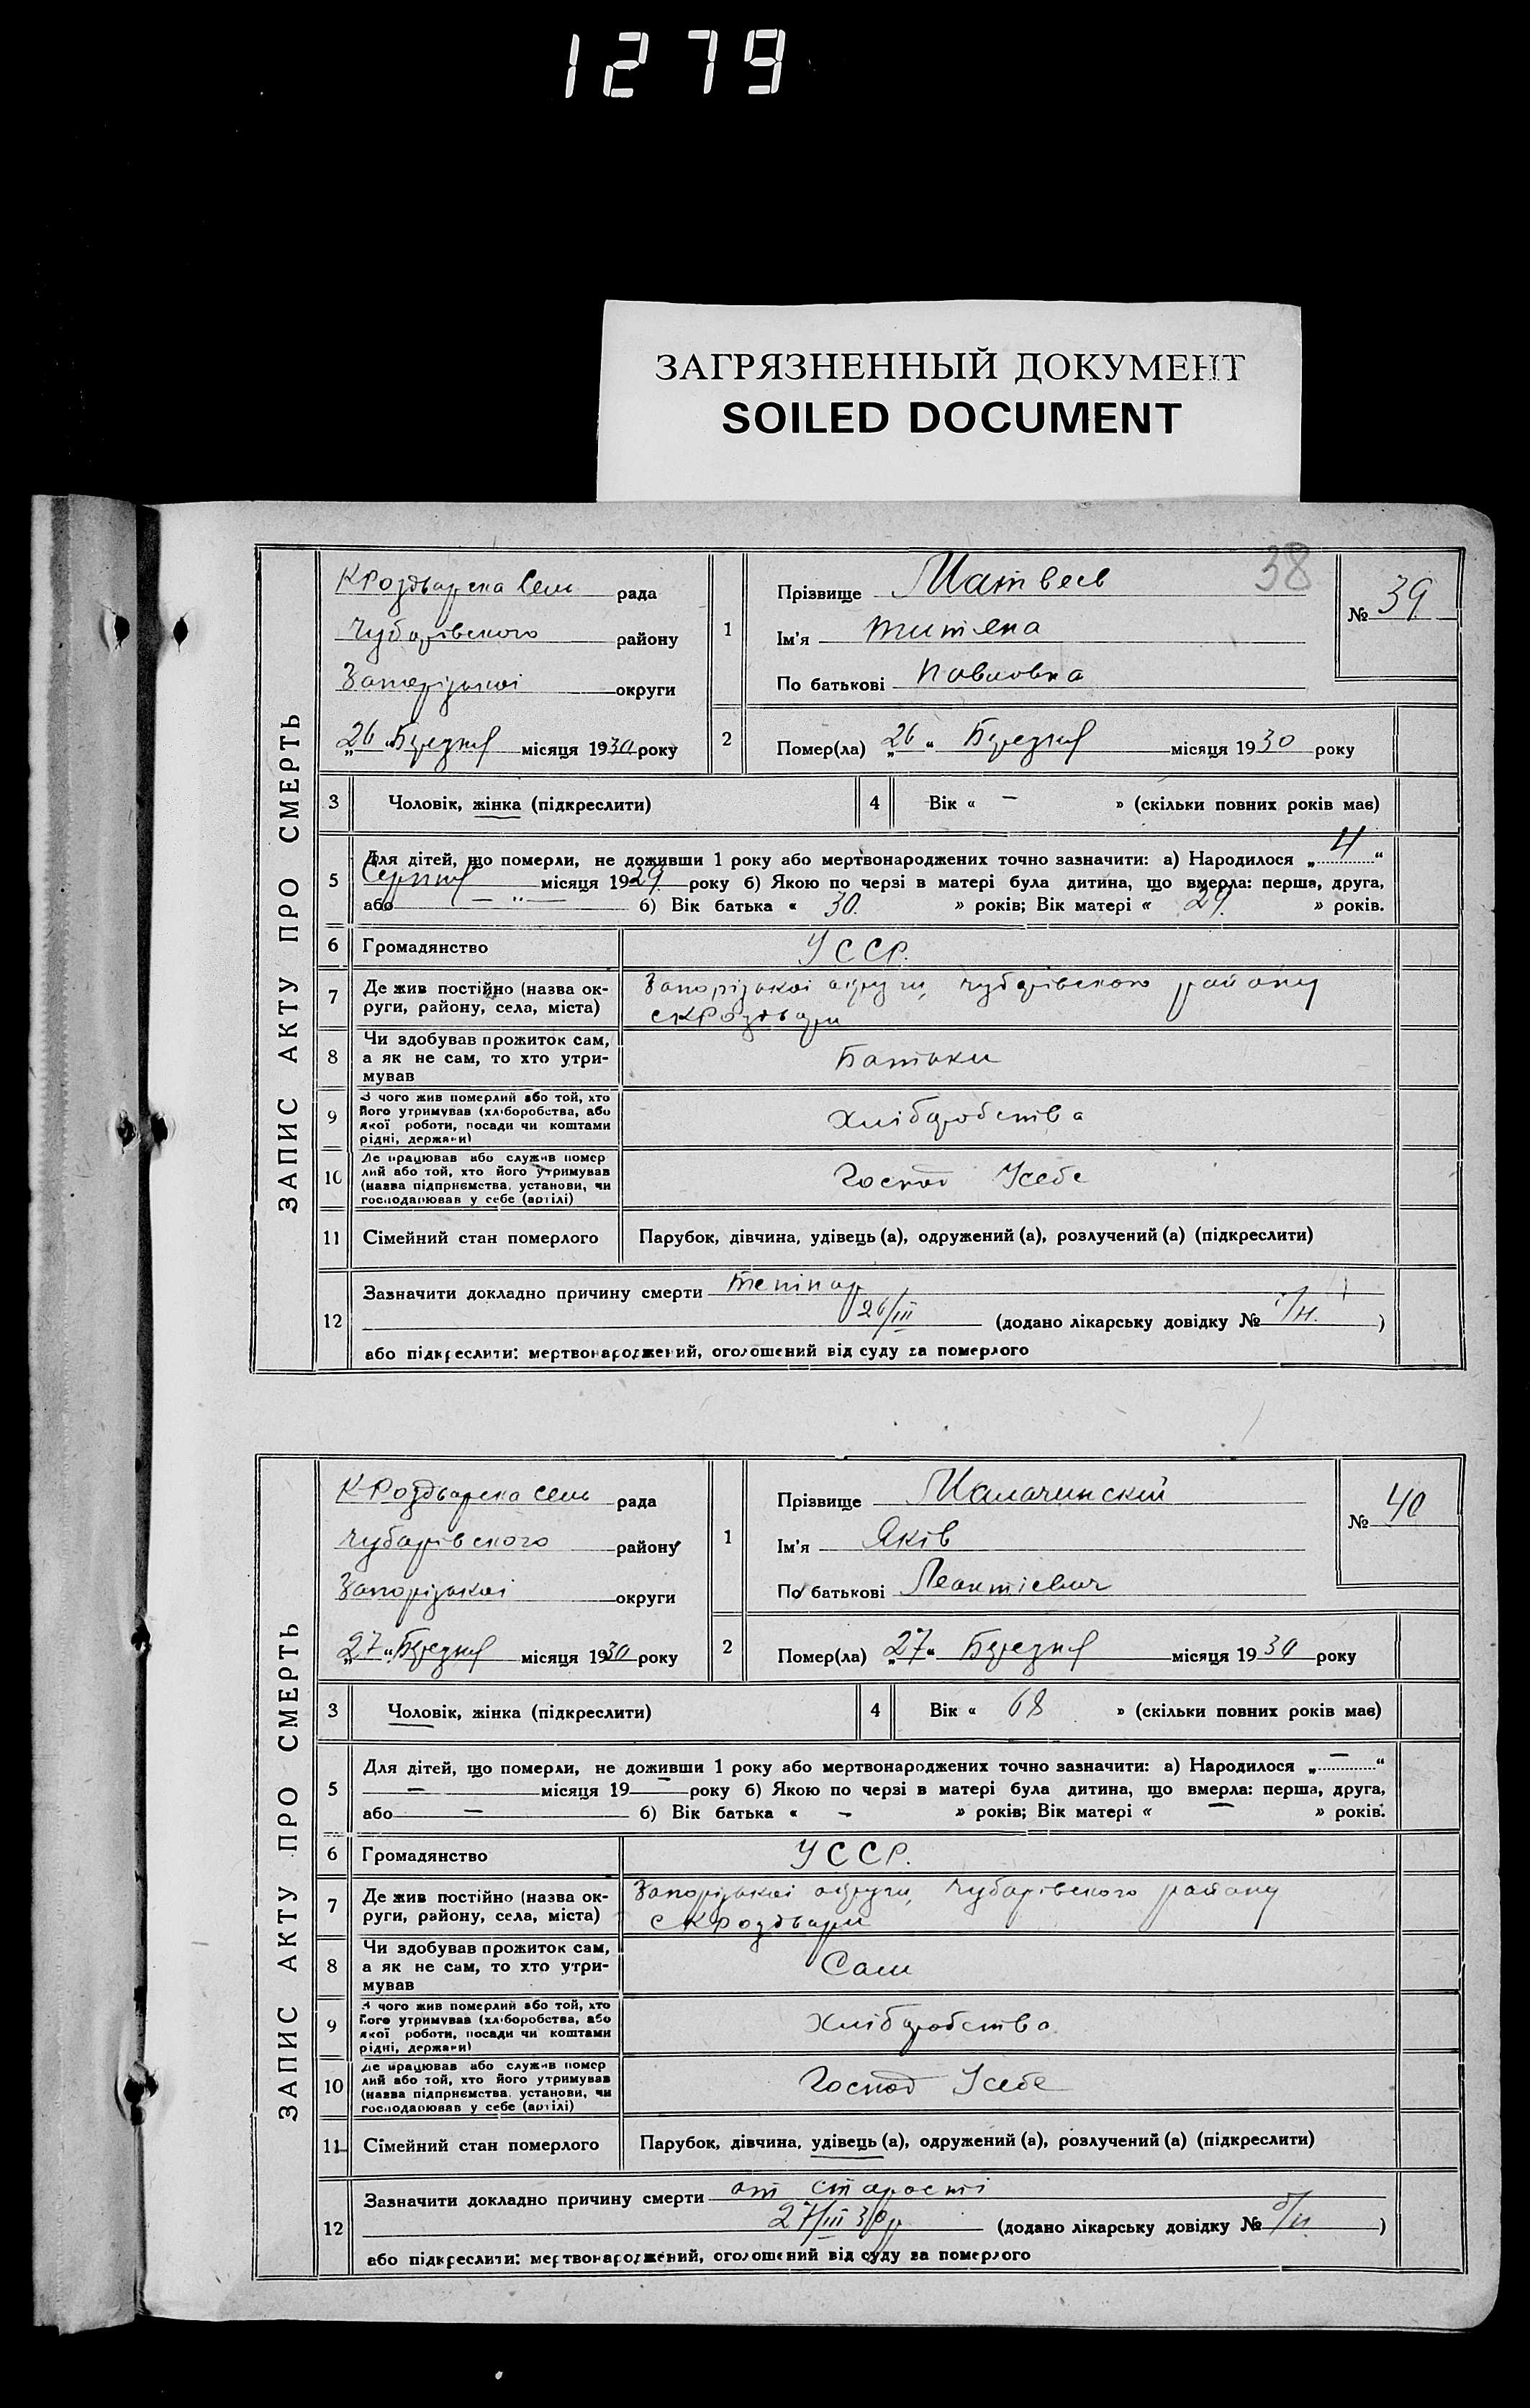 1279
ЗАГРЯЗНЕННЫЙ ДОКУМЕНТ
SOILED DOCUMENT
38
ЗАПИС АКТУ ПРО СМЕРТЬ
КРоздварска Сель рада
Чубарівського району
Запорізької округи
„26“ Березня місяця 1930 року
1
Прізвище Матвеев
Ім'я Титяна
По батькові Павловна
№ 39
2
Помер(ла) „26“ Березня місяця 1930 року
3 Чоловік, жінка (підкреслити)
4 Вік « – » (скільки повних років має)
5
Для дітей, що померли, не доживши 1 року або мертвонароджених точно зазначити: а) Народилося „4“
Серпня місяця 1929 року б) Якою по черзі в матері була дитина, що вмерла: перша, друга,
або – „ – б) Вік батька « 30 » років; Вік матері « 29 » років.
6 Громадянство УССР.
7
Де жив постійно (назва ок-
руги, району, села, міста)
Запорізької округи, Чубарівського району
с КРоздвари
8
Чи здобував прожиток сам,
а як не сам, то хто утри-
мував
Батьки
9
З чого жив померлий або той, хто
його утримував (хліборобства, або
якої роботи, посади чи коштами
рідні, держави)
Хліборобства
10
Де працював або служив помер
лий або той, хто його утримував
(назва підприємства, установи, чи
господарював у себе (артілі)
Господ Усебе
11 Сімейний стан померлого Парубок, дівчина, удівець (а), одружений (а), розлучений (а) (підкреслити)
12
Зазначити докладно причину смерти
26/III (додано лікарську довідку № )
або підкреслити: мертвонароджений, оголошений від суду за померлого
ЗАПИС АКТУ ПРО СМЕРТЬ
КРоздварска сель рада
Чубарівського району
Запорізької округи
„27“ Березня місяця 1930 року
1
Прізвище Малачинский
Ім'я Яків
По батькові Леонтієвич
№ 40
2
Помер(ла) „27“ Березня місяця 1930 року
3 Чоловік, жінка (підкреслити)
4 Вік « 68 » (скільки повних років має)
5
Для дітей, що померли, не доживши 1 року або мертвонароджених точно зазначити: а) Народилося „ – “
– місяця 19 – року б) Якою по черзі в матері була дитина, що вмерла: перша, друга,
або – б) Вік батька « – » років; Вік матері « – » років.
6 Громадянство УССР.
7
Де жив постійно (назва ок-
руги, району, села, міста)
Запорізької округи, Чубарівського району
с КРоздвари
8
Чи здобував прожиток сам,
а як не сам, то хто утри-
мував
Сам
9
З чого жив померлий або той, хто
його утримував (хліборобства, або
якої роботи, посади чи коштами
рідні, держави)
Хліборобство
10
Де працював або служив помер
лий або той, хто його утримував
(назва підприємства, установи, чи
господарював у себе (артілі)
Господ Усебе
11 Сімейний стан померлого Парубок, дівчина, удівець (а), одружений (а), розлучений (а) (підкреслити)
12
Зазначити докладно причину смерти от старості
27/III 30р (додано лікарську довідку № б/н )
або підкреслити: мертвонароджений, оголошений від суду за померлого